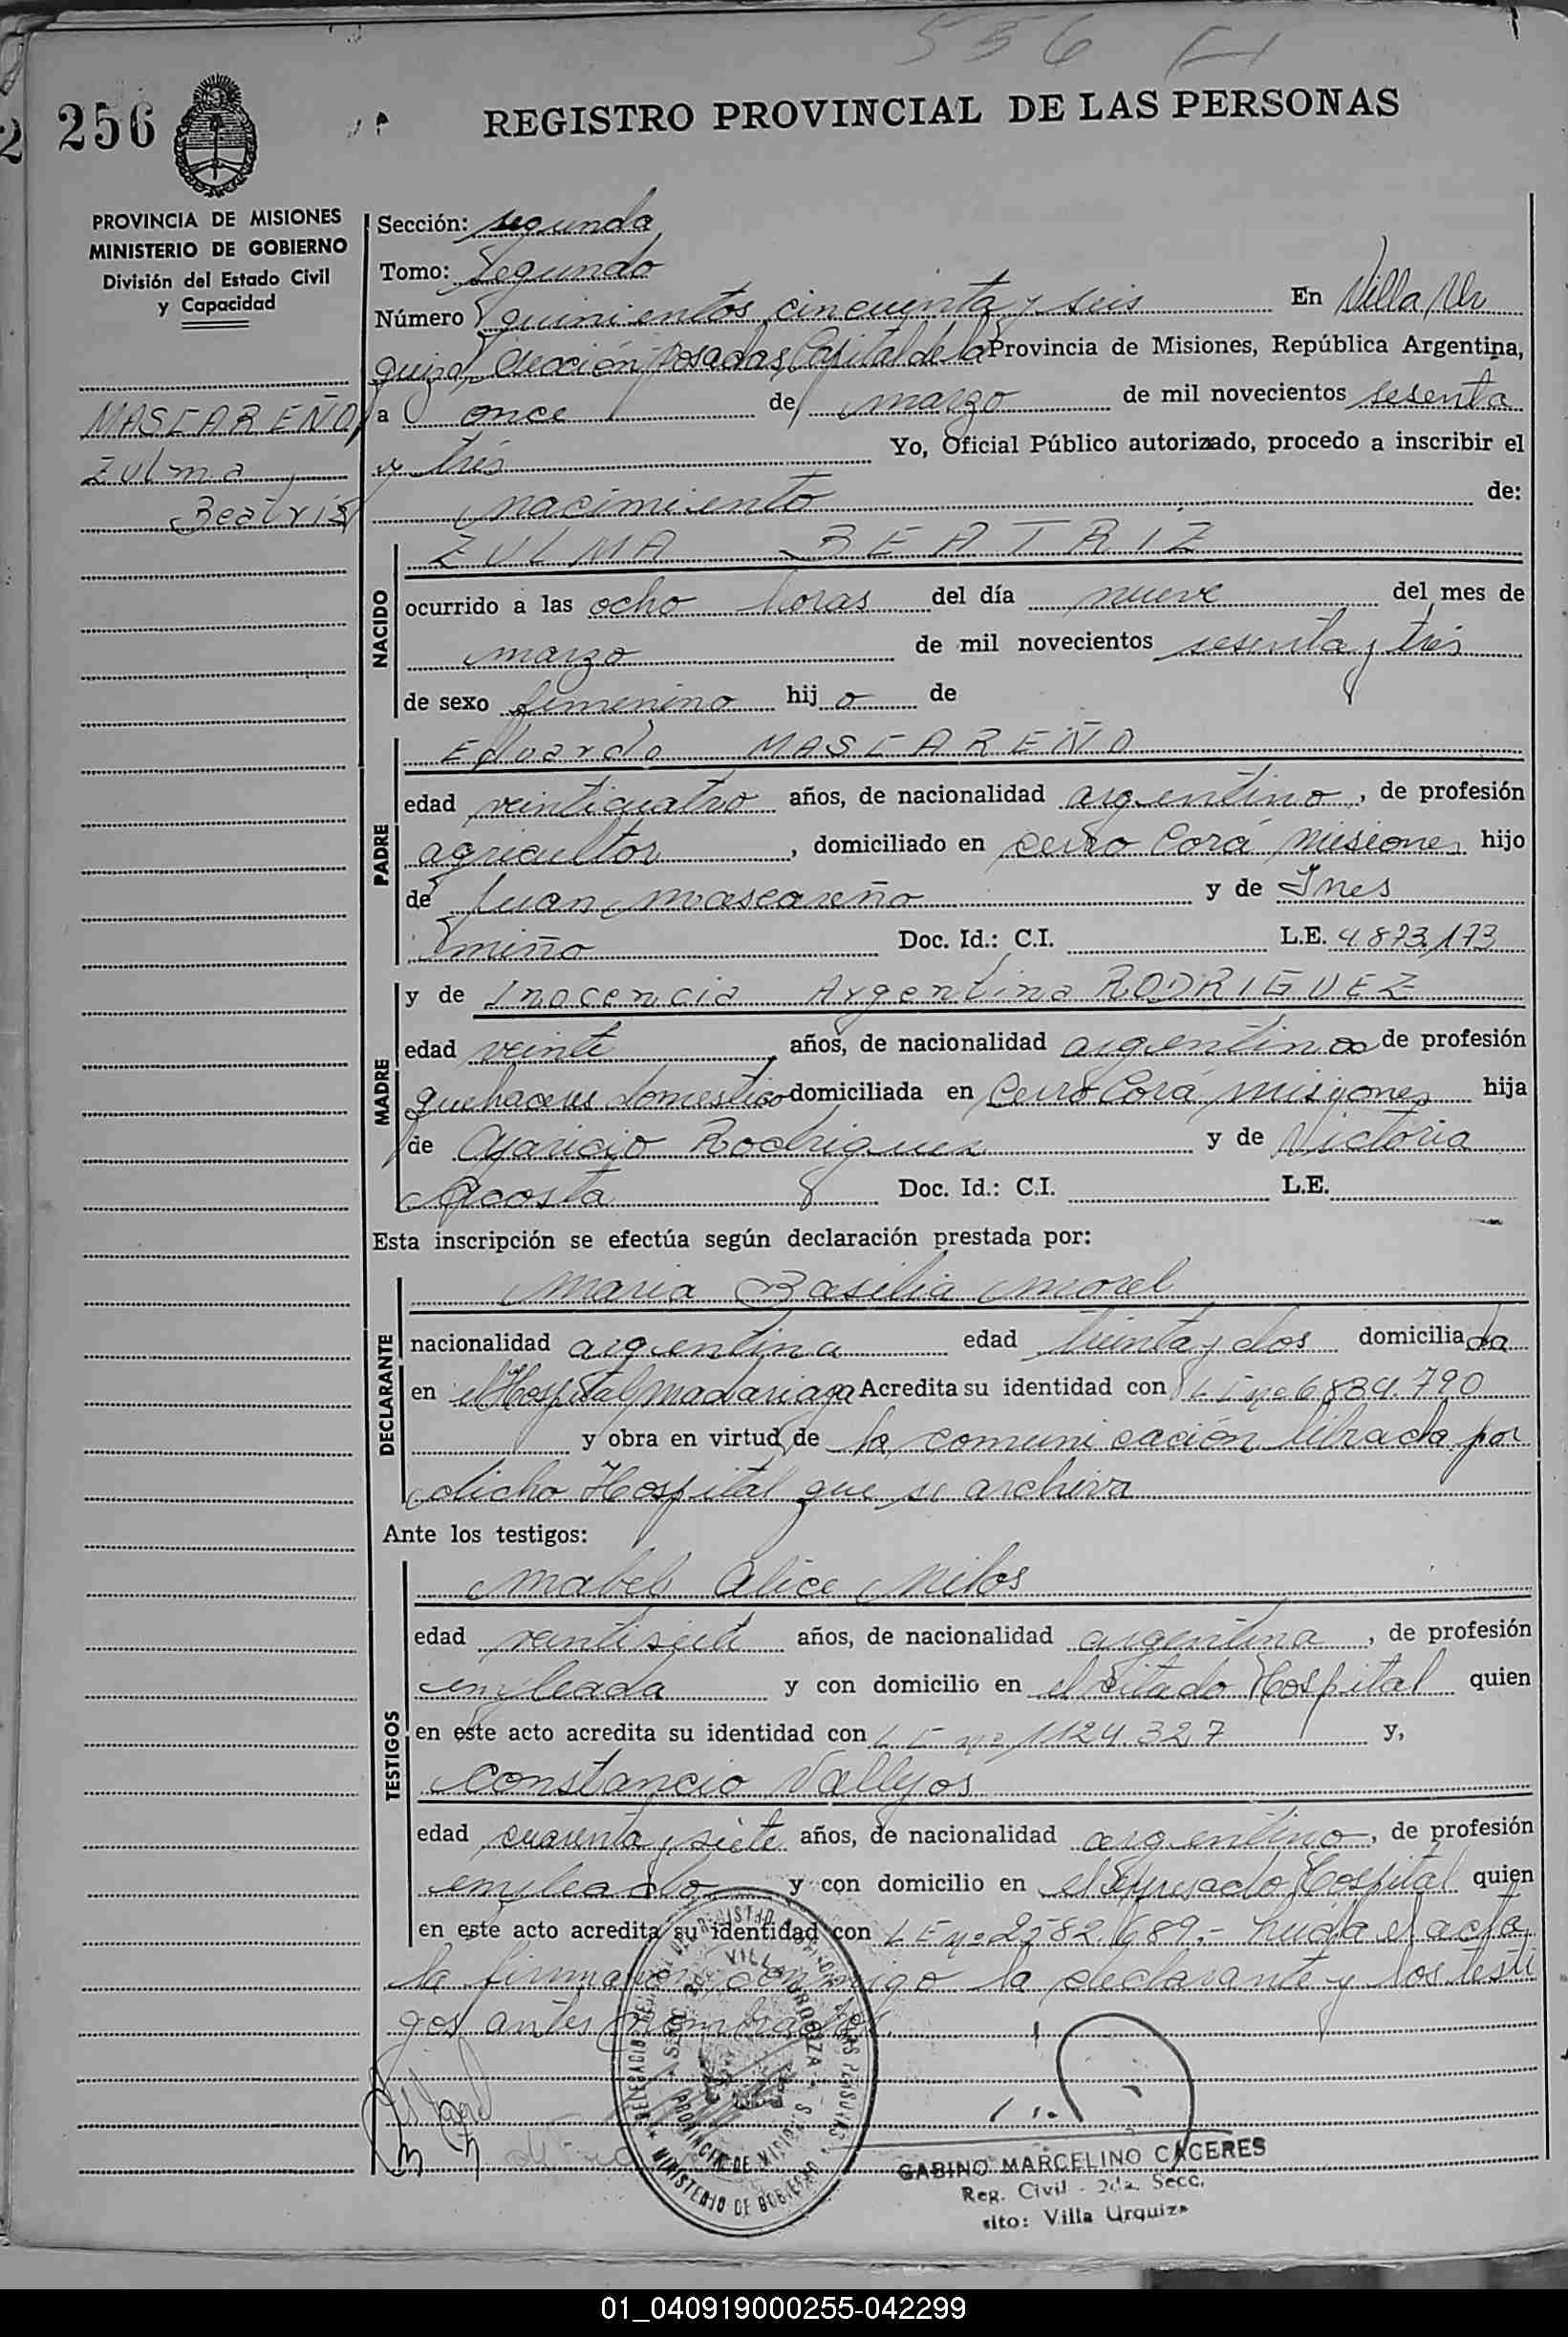 556
256
REGISTRO PROVINCIAL DE LAS PERSONAS
PROVINCIA DE MISIONES
MINISTERIO DE GOBIERNO
División del Estado Civil
y Capacidad
MASCAREÑO,
Zulma
Beatris
Sección: segunda
Tomo: Segundo
Número quinientos cincuenta y seis En Villa Ur
quiza, Sección Posadas, Capital de la Provincia de Misiones, República Argentina,
a once de marzo de mil novecientos sesenta
y tres Yo, Oficial Público autorizado, procedo a inscribir el
nacimiento de:
NACIDO
ZULMA BEATRIZ
ocurrido a las ocho horas del día nueve del mes de
marzo de mil novecientos sesenta y tres
de sexo femenino hij a de
PADRE
Eduardo MASCAREÑO
edad veinticuatro años, de nacionalidad argentino, de profesión
agricultor, domiciliado en Cerro Corá Misiones hijo
de Juan Mascareño y de Ines
Miño Doc. Id.: C.I. L.E. 4.873.173
MADRE
y de Inocencia Argentina RODRIGUEZ
edad veinte años, de nacionalidad argentina de profesión
quehaceres domestico domiciliada en Cerro Corá Misiones hija
de Aparicio Rodrigues y de Victoria
Acosta Doc. Id.: C.I. L.E.
Esta inscripción se efectúa según declaración prestada por:
DECLARANTE
Maria Basilia Morel
nacionalidad argentina edad treinta y dos domiciliada
en el Hospital Madariaga Acredita su identidad con L E nº 6.834.790
y obra en virtud de la comunicación librada por
dicho Hospital que se archiva
Ante los testigos:
TESTIGOS
Mabel Alice Milos
edad veintisiete años, de nacionalidad argentina, de profesión
empleada y con domicilio en el citado Hospital quien
en este acto acredita su identidad con L E nº 1124.327 y,
Constancio Vallejos
edad cuarenta y siete años, de nacionalidad argentino, de profesión
empleado y con domicilio en el expresado Hospital quien
en este acto acredita su identidad con L E nº 2582.689.- Leída el acta
la firmaron conmigo la declarante y los testi
gos antes nombrados.
MINISTERIO DE GOBIERNO
PROVINCIA DE MISIONES
GABINO MARCELINO CACERES
Reg. Civil - 2da. Secc.
sito: Villa Urquiza
01_040919000255-042299